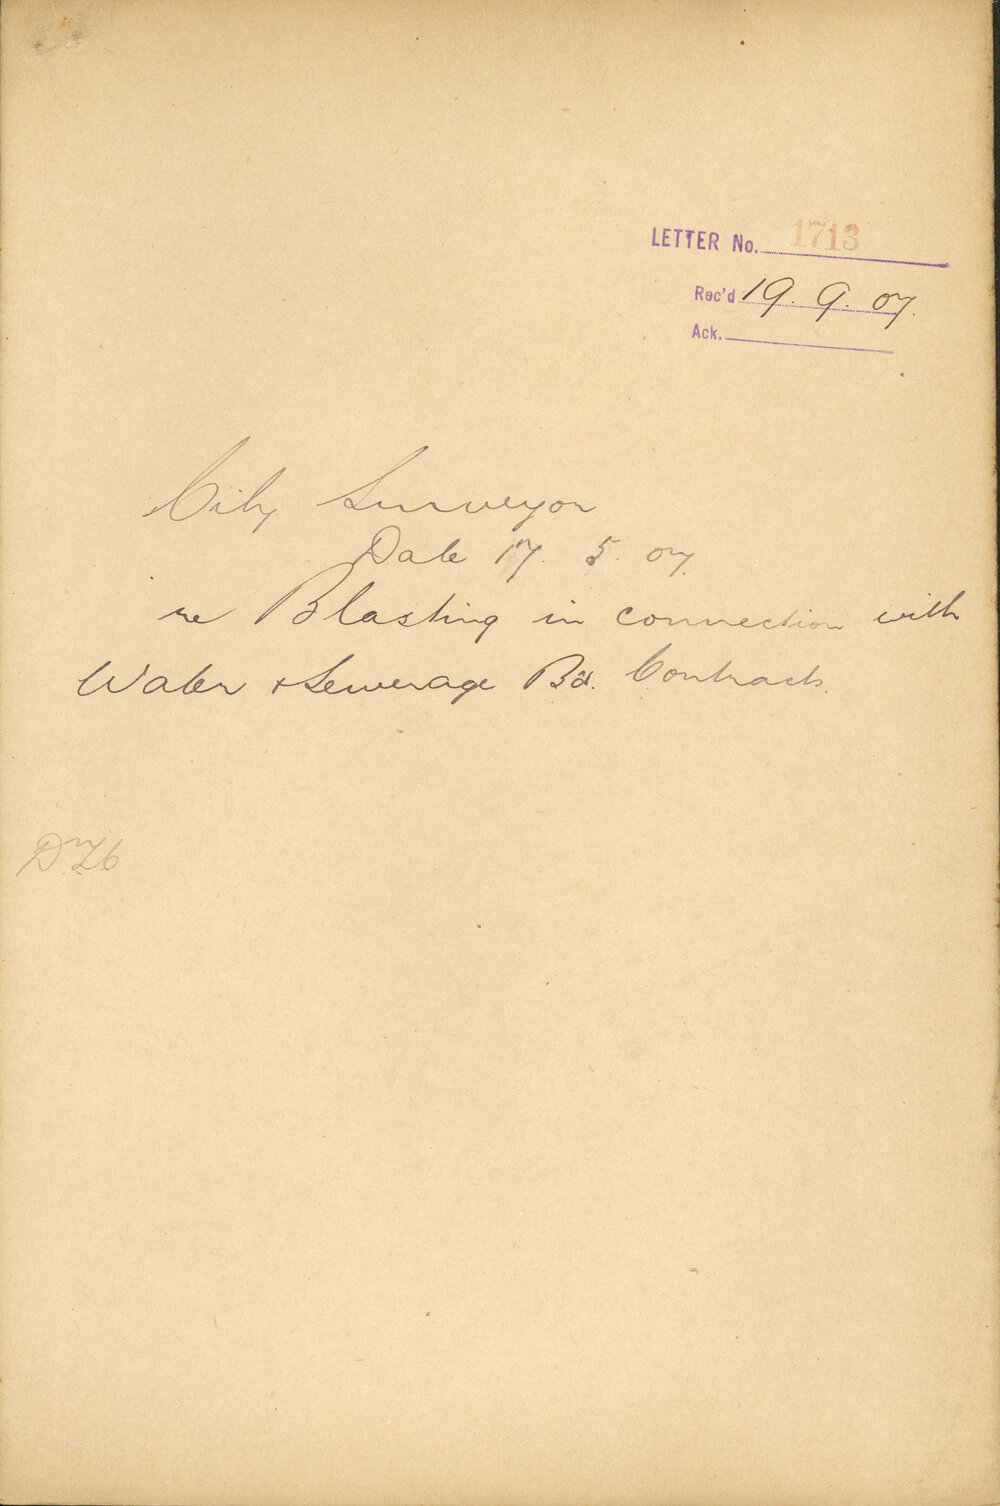 LETTER No. 1713
Rec'd 19. 9. 07.
Ack.
City Surveyor
Date 17. 5. 07.
re Blasting in connection with
Water & Sewerage Bd. Contracts.